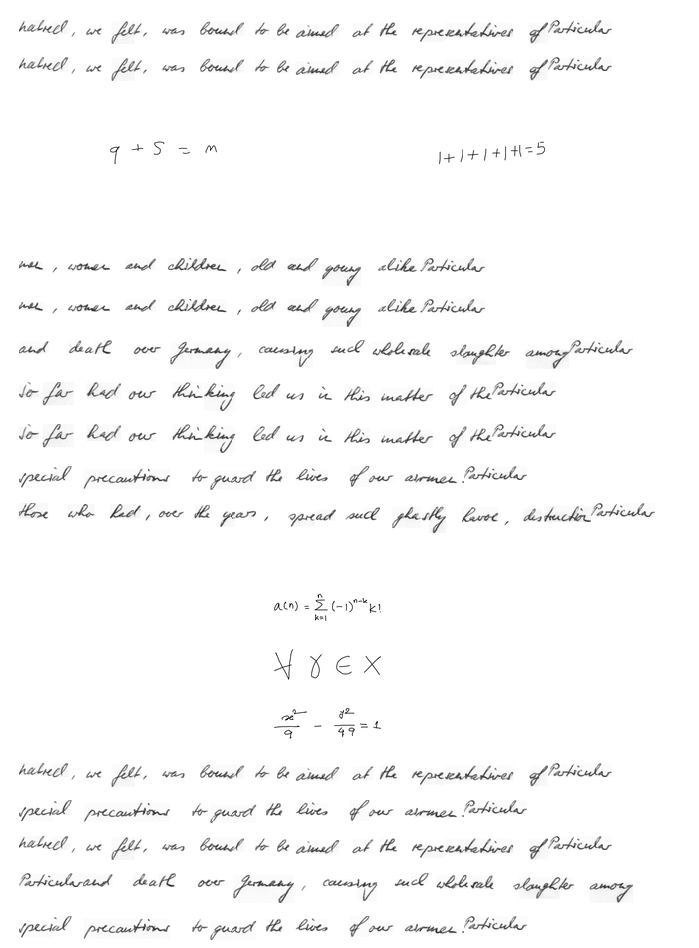 hatred, we felt, was bound to be aimed at the representatives of Particular
hatred, we felt, was bound to be aimed at the representatives of Particular
9 + 5 = m
1+1+1+1+1=5
men, women and children, old and young alike Particular
men, women and children, old and young alike Particular
and death over Germany, causing such wholesale slaughter among Particular
So far had our thinking led us in this matter of the Particular
So far had our thinking led us in this matter of the Particular
special precautions to guard the lives of our airmen. Particular
those who had, over the years, spread such ghastly havoc, destruction Particular
a(n) = ∑_{k=1}^{n} (-1)^{n-k} k!
∀ γ ∈ X
x²/9 - y²/49 = 1
hatred, we felt, was bound to be aimed at the representatives of Particular
special precautions to guard the lives of our airmen. Particular
hatred, we felt, was bound to be aimed at the representatives of Particular
Particular and death over Germany, causing such wholesale slaughter among
special precautions to guard the lives of our airmen. Particular